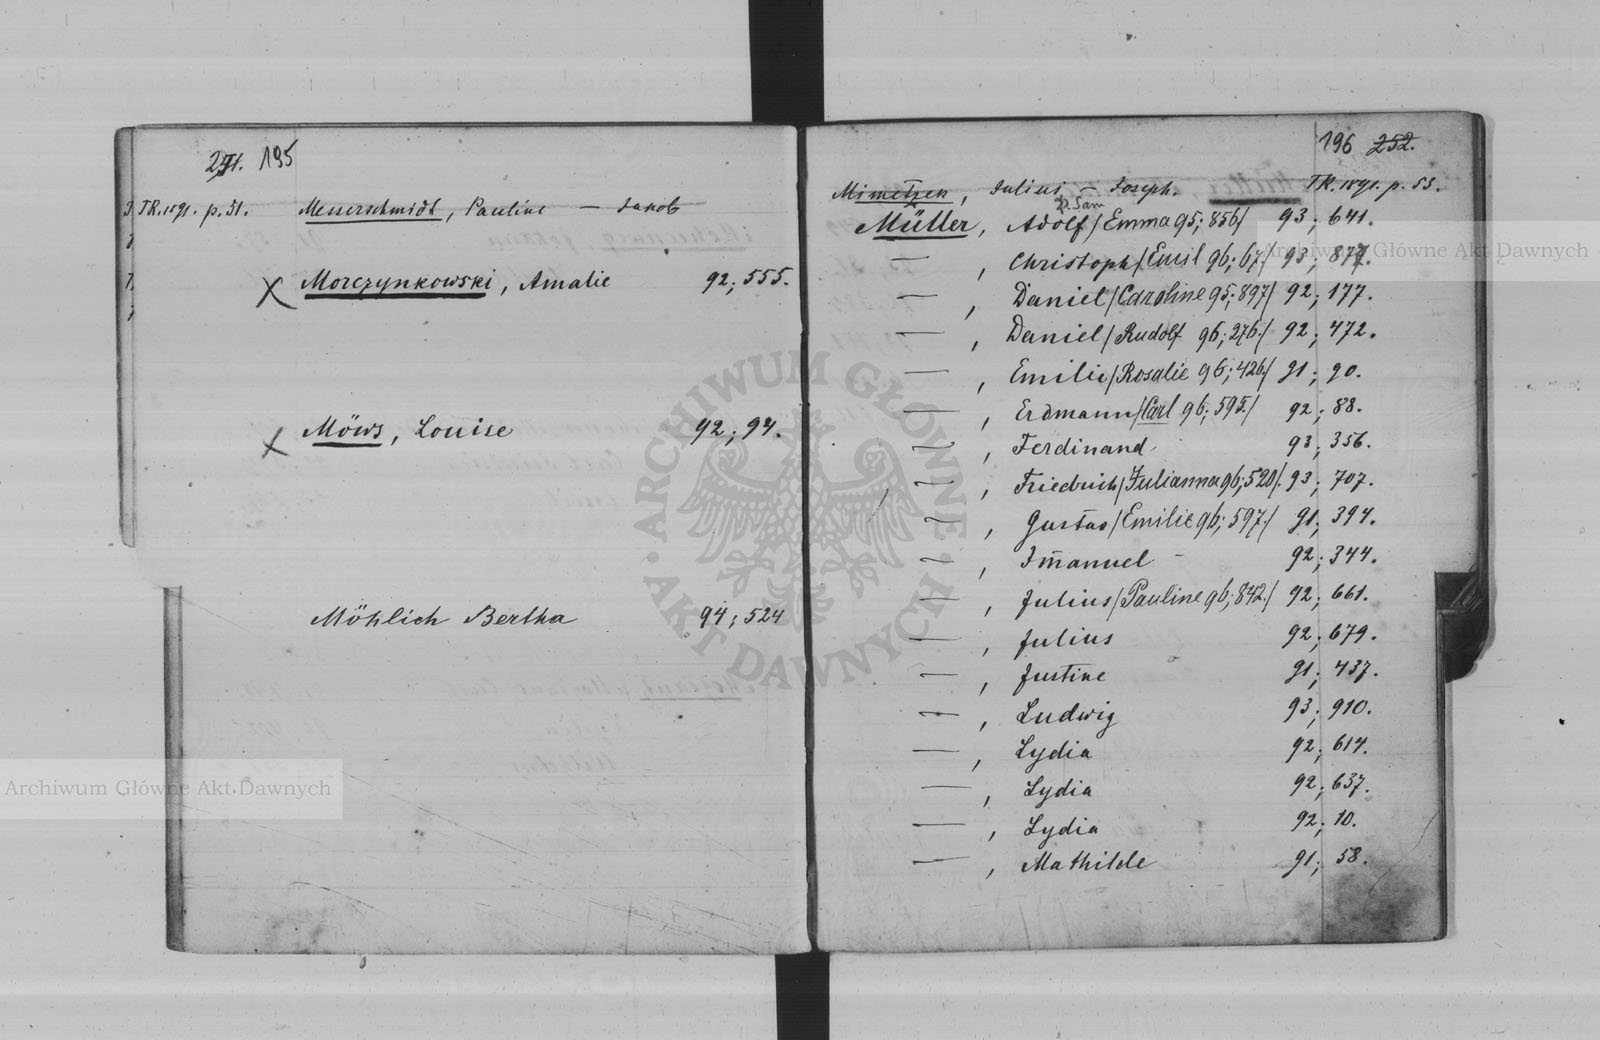 251. 195
TR. 1891. p. 51. Messerschmidt, Pauline — Jakob
X Morczynkowski, Amalie 92; 555.
X Möws, Louise 92; 94.
Möhlich Bertha 94; 524
196 252.
Mimetzek, Julius — Joseph. TR. 1891. p. 53.
Müller, Adolf /Emma 95; 856/ 93; 641.
— , Christoph /Emil 96; 67/ 93; 877.
— , Daniel /Caroline 95; 897/ 92; 177.
— , Daniel /Rudolf 96; 276./ 92; 472.
— , Emilie /Rosalie 96; 426./ 91; 90.
— , Erdmann /Carl 96; 595./ 92; 88.
— , Ferdinand 93; 356.
— , Friedrich /Julianna 96; 520/. 93; 707.
— , Gustav /Emilie 96; 597./ 91; 394.
— , Im̄anuel — 92; 344.
— , Julius /Pauline 96; 842./ 92; 661.
— , Julius 92; 679.
— , Justine 91; 437.
— , Ludwig 93; 910.
— , Lydia 92; 614.
— , Lydia 92; 637.
— , Lydia 92; 10.
— , Mathilde 91; 58.
ARCHIWUM GŁÓWNE AKT DAWNYCH
Archiwum Główne Akt Dawnych
Archiwum Główne Akt Dawnych